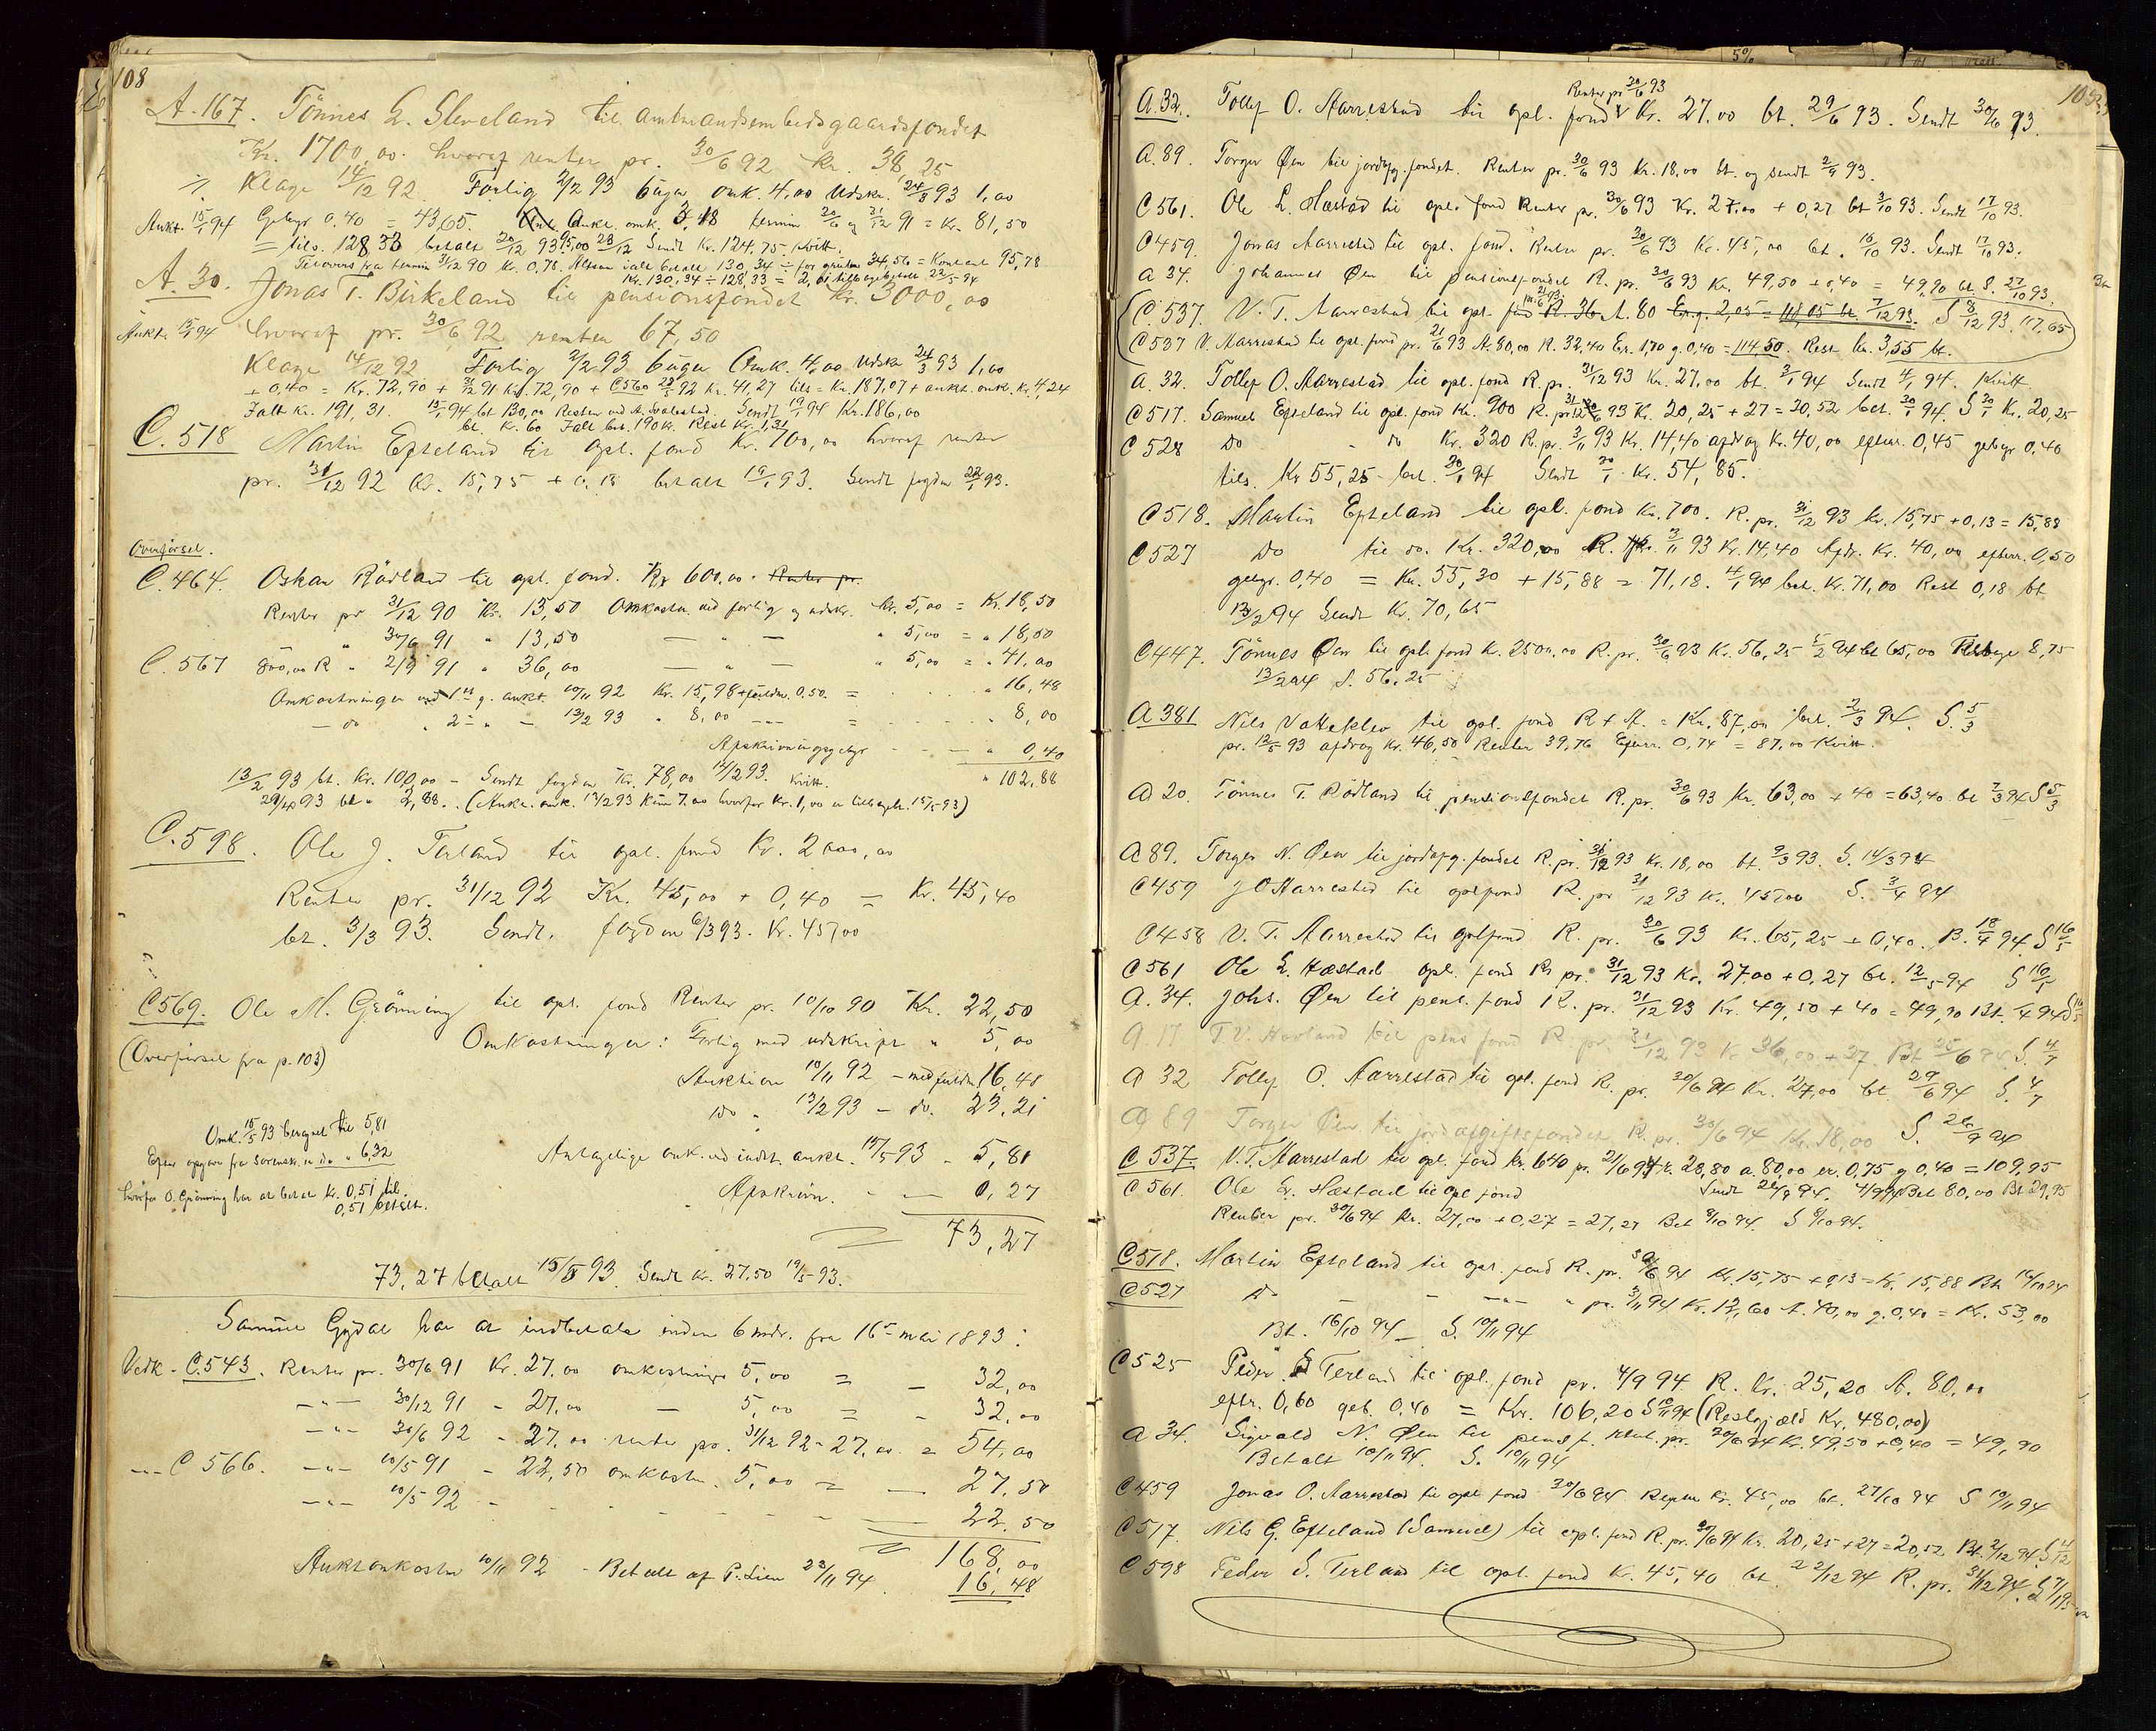 108
A. 167. Tönnes L. Sleveland til amtmandsembedsgaardsfondet
Kr. 1700,00. hvoraf renter pr. 30/6 92 kr. 38,25
Klage 14/12 92. Forlig 2/2 93 6 uger omk. 4,00 Udskr. 24/3 93 1,00
Aukt. 15/1 94 Gebyr 0.40 = 43,65. Aukt. omk. 3,18 termin 30/6 og 31/12 91 = Kr. 81,50
= tils. 128,33 betalt 30/12 93 95,00 28/12 Sendt Kr. 124,75 - kvitt.
Tilovers fra termin 31/12 90 Kr. 0,78. Altsaa ialt betalt 130,34 ÷ for 34,56 = Kontant 95,78
Kr. 130,34 ÷ 128,33 = 2,01 tilbagebetalt 22/5 94
A. 30. Jonas T. Birkeland til pensionsfondet kr. 3000,00
Aukt. 15/1 94 hvoraf pr. 30/6 92 renter 67,50
Klage 14/12 92 Forlig 2/2 93 6 uger Omk. 4,00 Udskr 24/3 93 1,00
+ 0,40 = Kr. 72,90 + 31/12 91 Kr. 72,90 + C560 23/5 92 Kr. 41,27 tils = Kr. 187,07 + aukt. omk. Kr. 4,24
Ialt Kr. 191,31. 15/1 94 bt 130,00 Rester ved A. Svalestad. Sendt 19/1 94 Kr. 186,00
bt. Kr. 60 Ialt bet. 190 kr. Rest Kr. 1,31
C. 518 Martin Efteland til opl. fond Kr. 700,00 hvoraf renter
pr. 31/12 92 Kr. 15,75 + 0.13 betalt 19/1 93. Sendt fogden 22/1 93.
Overførsel.
C. 464. Oskar Rödland til opl. fond. Kr 600,00. Renter pr.
Renter pr 31/12 90 Kr. 13,50 Omkostn. ved forlig og udskr. kr. 5,00 = Kr. 18,50
" 30/6 91 " 13,50 — " — " 5,00 = " 18,50
C. 567 800,00 R " 2/9 91 " 36,00 — " — " 5,00 = " 41,00
Omkostninger ved 1ste g. aukt. 10/11 92 Kr. 15,98 + fuldm. 0.50. = " 16,48
— do " 2 " — 13/2 93 " 8,00 --- = " 8,00
Afskrivningsgebyr — " 0,40
13/2 93 bt. Kr. 100,00 - Sendt fogden Kr. 78,00 14/2 93. Kvitt. " 102,88
29/4 93 bt " 2,88. (Aukt. omk. 13/2 93 kun 7.00 hvorfor Kr. 1,00 er tilbagebt. 15/5 93)
C. 598. Ole J. Terland til opl. fond Kr. 2000,00
Renter pr. 31/12 92 Kr. 45,00 + 0,40 = Kr. 45,40
bt. 3/3 93. Sendt. fogden 6/3 93. Kr. 45,00
C569. Ole M. Grönning til opl. fond Renter pr. 10/10 90 Kr. 22,50
(Overførsel fra p. 103) Omkostninger: Forlig med udskript " 5,00
Auktion 10/11 92 - med fuldm. 16,48
Do " 13/2 93 - do. 23.21
Omk. 15/5 93 beregnet til 5,81
Antagelige omk. ved indst. aukt. 15/5 93 - 5,81
Efter opgave fra sorenskr. er do " 6,32
Afskrivn. - - — 0,27
hvorfor O. Grönning har at betale Kr. 0,51 til.
0,51 betalt.
73,27
73,27 betalt 15/5 93. Sendt Kr. 27.50 19/5 93.
Samuel Gydal har at indbetale inden 6 mdr. fra 16de mai 1893:
Vedk - C.543. Renter pr. 30/6 91 Kr. 27.00 omkostninger 5,00 = - 32,00
—"— 30/12 91 - 27.00 — 5,00 = - 32,00
—"— 30/6 92 - 27.00 renter pr. 31/12 92 - 27,00 = 54,00
--- C 566. —"— 10/5 91 - 22,50 omkostn. 5,00 = — 27,50
—"— 10/5 92 - - - - - — 22.50
168,00
Auktsomkostn 10/11 92 - Betalt af P. Lien 23/11 94. 16,48
A. 32. Tollef O. Aarrestad til opl. fond Renter pr 30/6 93 Kr. 27.00 bt. 29/6 93. Sendt 30/6 93.
A. 89. Torger Øen til jordafg. fondet. Renter pr. 30/6 93 Kr. 18,00 bt. og sendt 2/9 93.
C 561. Ole L. Hæstad til opl. fond Renter pr. 30/6 93 Kr. 27.00 + 0,27 bt 3/10 93. Sendt 17/10 93.
C 459. Jonas Aarrestad til opl. fond. Renter pr. 30/6 93 Kr. 45,00 bt. 16/10 93. Sendt 17/10 93.
A 34. Johannes Øen til pensionsfondet R. pr. 30/6 93 Kr. 49,50 + 0,40 = 49,90 bt S. 27/10 93.
C. 537. V. T. Aarrestad til opl. fond R. 36 A. 80 Er. g. 2,05 = 118,05 bt. 7/12 93. S 8/12 93. 117,65
C 537 V. Aarrestad til opl. fond pr. 21/6 93 A. 80,00 R. 32,40 Er. 1,70 g. 0,40 = 114,50. Rest kr. 3,55 bt.
A. 32. Tollef O. Aarrestad til opl. fond R. pr. 31/12 93 Kr. 27.00 bt. 3/1 94 Sendt 4/1 94. Kvitt.
C 517. Samuel Efteland til opl. fond Kr. 900 R. pr. 31/12 93 Kr. 20,25 + 27 = 20,52 bet. 20/1 94. S 20/1 Kr. 20,25
C 528 Do - do Kr. 320 R. pr. 3/11 93 Kr. 14,40 afdrag Kr. 40,00 efterr. 0,45 gebyr 0,40
tils. Kr 55,25 - bet. 20/1 94 Sendt 20/1 Kr. 54,85.
C 518. Martin Efteland til opl. fond Kr. 700. R. pr. 31/12 93 Kr. 15,75 + 0,13 = 15,88
C 527 Do til do. Kr. 320,00 R. pr. 3/11 93 Kr. 14,40 Afdr. Kr. 40,00 efterr. 0,50
gebyr. 0,40 = Kr. 55,30 + 15,88 = 71,18. 4/1 94 bet. Kr. 71,00 Rest 0,18 bt
13/2 94 Sendt Kr. 70,65
C 447. Tönnes Øen til opl. fond Kr. 2500,00 R. pr. 30/6 93 Kr. 56,25 5/2 94 bt 65,00 8,75
13/2 94 S. 56.25
A 381 Nils Vatteklev til opl. fond R + A. = Kr. 87,00 bet. 2/3 94. S. 5/3
pr. 12/5 93 afdrag Kr. 46,50 Renter 39,76 Efterr. 0,74 = 87.00 Kvitt.
A 20. Tönnes T. Rödland til pensionsfondet R. pr. 30/6 93 Kr. 63,00 + 40 = 63,40. bt 2/3 94 S 5/3
A 89. Torger N. Øen til jordafg. fondet R. pr. 31/12 93 Kr. 18,00 bt. 9/3 93. S. 14/3 94
C 459 J O Aarrestad til oplfond R. pr 31/12 93 Kr. 45,00 S. 3/4 94
C 458 V. T. Aarrestad til oplfond R. pr. 30/6 93 Kr. 65,25 + 0,40. B. 18/4 94. S 16/5
C 561 Ole L. Hæstad opl. fond R. pr. 31/12 93 Kr. 27.00 + 0,27 bt. 12/5 94 S 16/5
A. 34. Johs. Øen til pens. fond R. pr. 31/12 93 Kr. 49,50 + 40 = 49,90 Bt.
A 17 T. V. Hovland til pens fond R. pr. 31/12 93 Kr 36,00 + 27 Bt 25/6 94 S. 4/7
A 32 Tollef O. Aarrestad til opl. fond R. pr. 30/6 94 Kr. 27,00 bt. 29/6 94 S. 4/7
A 89 Torger Øen til jordafgiftsfondet R. pr. 30/6 94 Kr. 18,00 S. 26/9 94
C 537. V. T. Aarrestad til opl. fond Kr. 640 pr. 21/6 94 r. 28,80 a. 80,00 er. 0,75 g 0,40 = 109,95
C 561. Ole L. Hæstad til opl fond Sendt 26/9 94. 4/9 94 Bet 80,00 Bt 29,95
Renter pr. 30/6 94 Kr. 27,00 + 0,27 = 27,27 Bet 8/10 94. S 8/10 94.
C 518. Martin Efteland til opl. fond R. pr. 30/6 94 Kr. 15,75 + 0,13 = Kr. 15,88 Bt. 16/10 94
C 527 Do — - —"— " pr. 3/11 94 Kr. 12,60 A. 40,00 g. 0,40 = Kr. 53,00
Bt. 16/10 94 — S. 10/11 94
C 525 Peder S Terland til opl. fond pr. 4/9 94. R. Kr. 25,20 A. 80,00
eftr. 0,60 geb. 0,40 = Kr. 106,20 S 10/11 94 (Restgjæld Kr. 480,00)
A 34. Sigvald N. Øen til pensf. Rent. pr. 30/6 94 Kr. 49,50 + 0,40 = 49,90
Betalt 10/11 94. S. 10/11 94
C 459 Jonas O. Aarrestad til opl. fond 30/6 94 Renter Kr. 45,00 bt. 27/10 94 S 10/11 94
C 517. Nils G. Efteland (Samuel) til opl. fond R. pr. 30/6 94 Kr. 20,25 + 27 = 20,52 Bt. 2/12 94. S 4/12
C 598 Peder S. Terland til opl. fond K. 45,40 bt. 22/12 94 R. pr. 31/12 94.